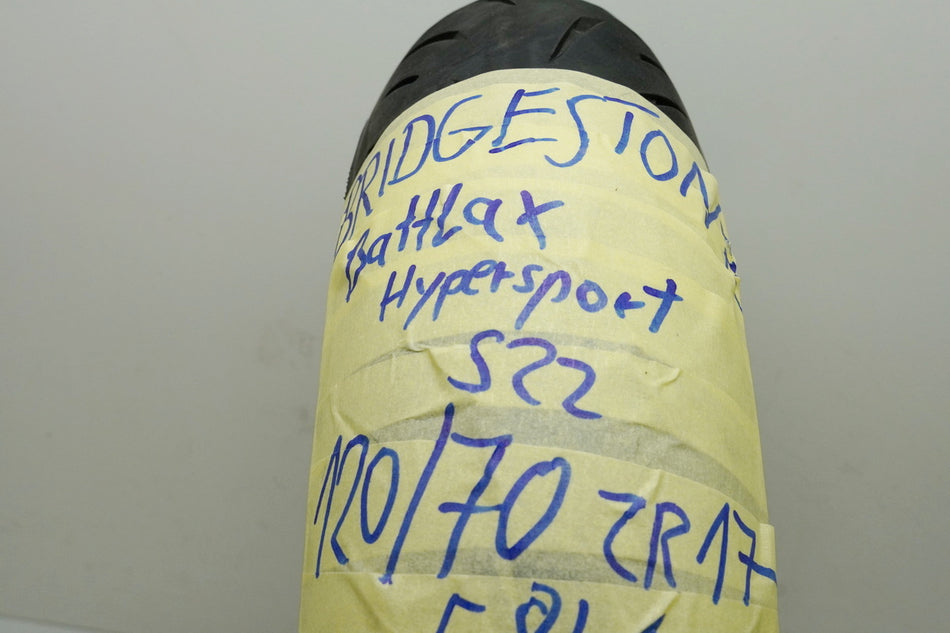 BRIDGESTONE
Battlax
Hypersport
S22
120/70 ZR17